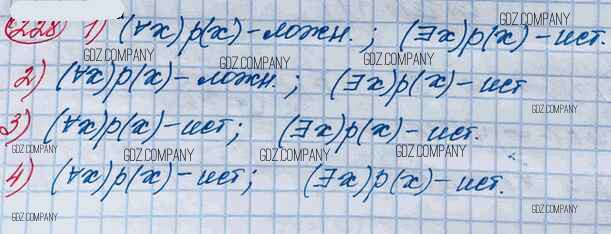 228 1) (∀x)p(x) - ложн. ; (∃x)p(x) - ист.
2) (∀x)p(x) - ложн. ; (∃x)p(x) - ист
3) (∀x)p(x) - ист ; (∃x)p(x) - ист.
4) (∀x)p(x) - ист ; (∃x)p(x) - ист.
GDZ.COMPANY
GDZ.COMPANY
GDZ.COMPANY GDZ.COMPANY
GDZ.COMPANY
GDZ.COMPANY
GDZ.COMPANY GDZ.COMPANY GDZ.COMPANY
GDZ.COMPANY
GDZ.COMPANY